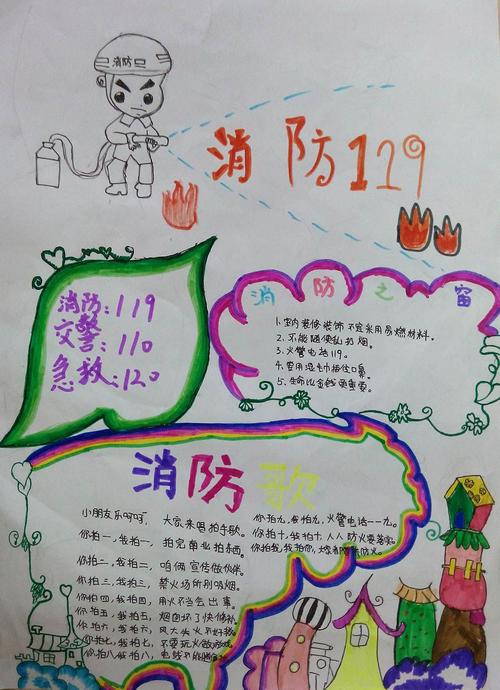 消防
消防119
消防:119
交警:110
急救:120
消防之窗
1.室内装修装饰不宜采用易燃材料。
2.不能随便乱扔烟。
3.火警电话119。
4.要用湿毛巾捂住口鼻。
5.生命比金钱更重要。
消防歌
小朋友乐呵呵，大家来唱拍手歌。
你拍一，我拍一，拍完角业拍东西。
你拍二，我拍二，咱俩宣传做伙伴。
你拍三，我拍三，禁火场所别吸烟。
你拍四，我拍四，用火不当会出事。
你拍五，我拍五，烟囱坏了快修补。
你拍六，我拍六，风大拨火不好救。
你拍七，我拍七，不要玩火做游戏。
你拍八，我拍八，电线不能
你拍九，我拍九，火警电话一一九。
你拍十，我拍十，人人防火要落实。
你拍我，我拍你，